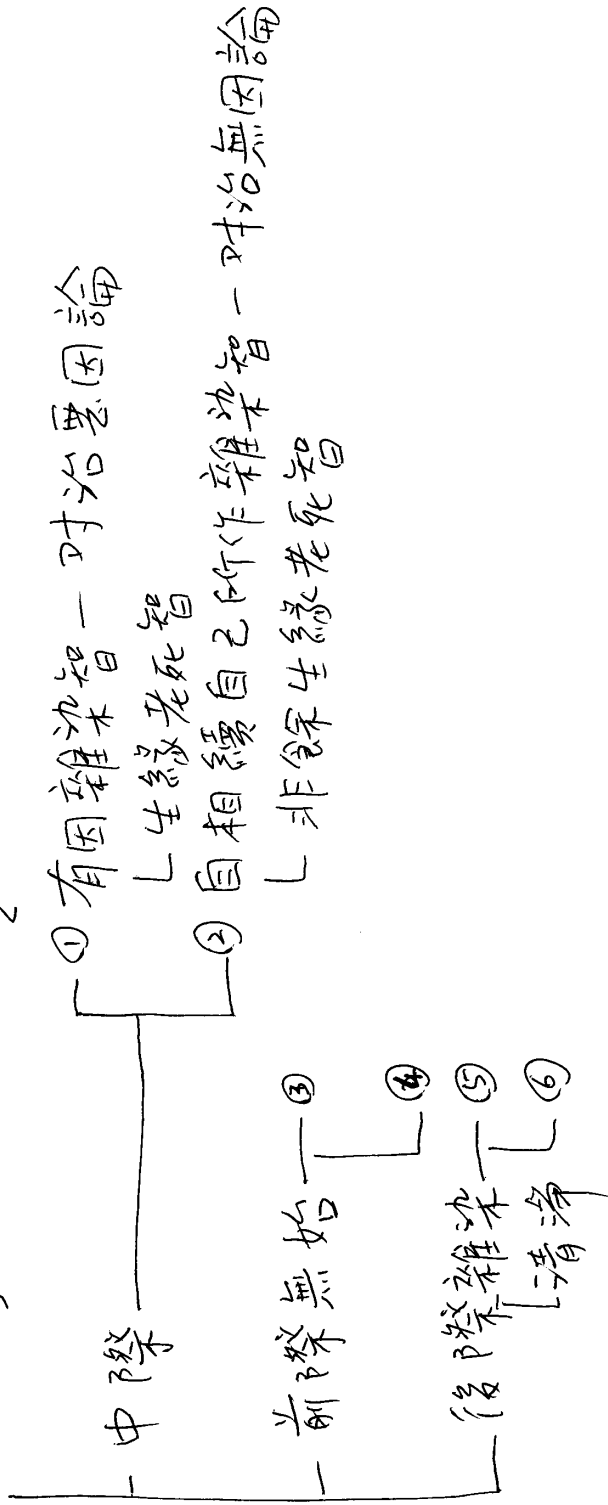 中際
① 有因雜染智 — 对治惡因論
└ 生緣老死智
② 自相續自己所作雜染智 — 对治無因論
└ 非餘生緣老死智
前際無始 — ③
④
後際雜染 — ⑤
└清淨 ⑥